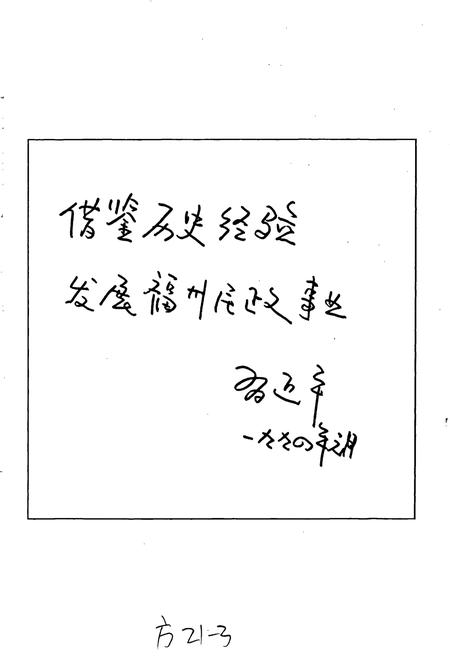 借鉴历史经验
发展福州民政事业
习近平
一九九四年元月
方21-3